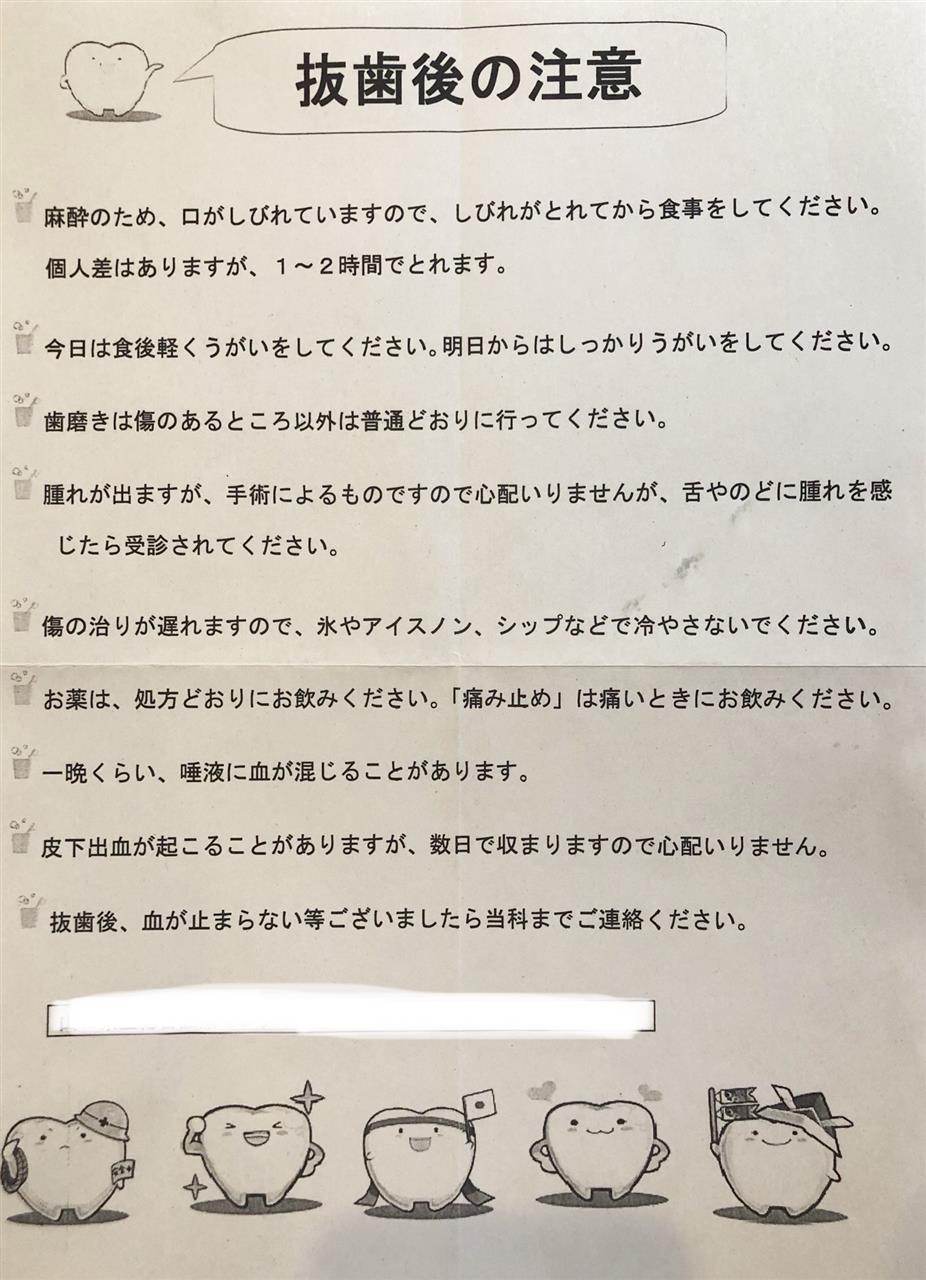 抜歯後の注意
麻酔のため、口がしびれていますので、しびれがとれてから食事をしてください。
個人差はありますが、１～２時間でとれます。
今日は食後軽くうがいをしてください。明日からはしっかりうがいをしてください。
歯磨きは傷のあるところ以外は普通どおりに行ってください。
腫れが出ますが、手術によるものですので心配いりませんが、舌やのどに腫れを感
じたら受診されてください。
傷の治りが遅れますので、氷やアイスノン、シップなどで冷やさないでください。
お薬は、処方どおりにお飲みください。「痛み止め」は痛いときにお飲みください。
一晩くらい、唾液に血が混じることがあります。
皮下出血が起こることがありますが、数日で収まりますので心配いりません。
抜歯後、血が止まらない等ございましたら当科までご連絡ください。